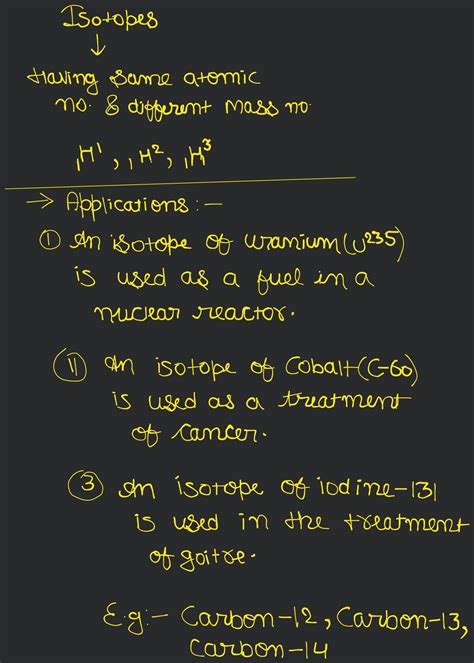 Isotopes
↓
Having same atomic
no. & different mass no.
₁H¹, ₁H², ₁H³
→ Applications :-
① An isotope of uranium (U²³⁵)
is used as a fuel in a
nuclear reactor.
⑪ An isotope of Cobalt (C-60)
is used as a treatment
of cancer.
③ An isotope of iodine-131
is used in the treatment
of goitre.
E.g:- Carbon-12, Carbon-13,
Carbon-14